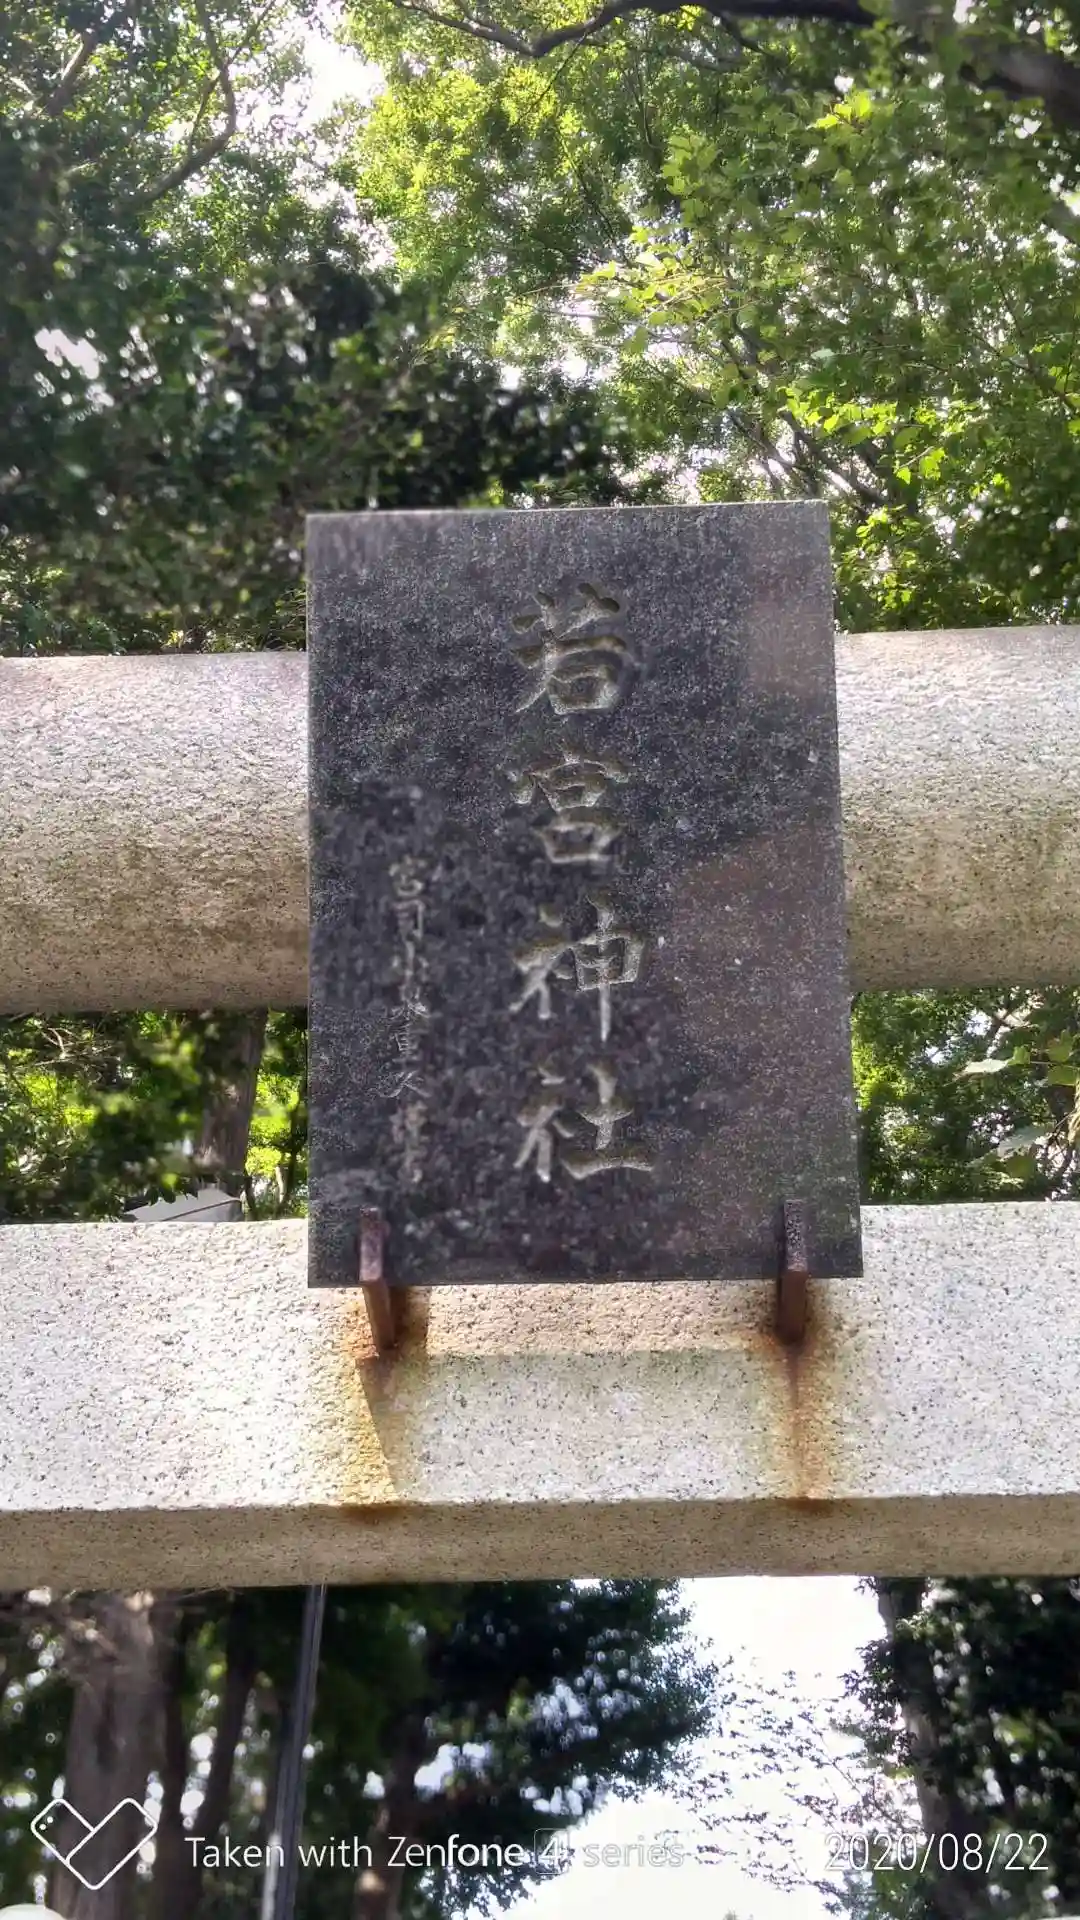 若宮神社
宮司小
Taken with Zenfone 4 series
2020/08/22